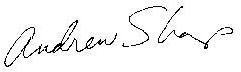 Andrew Sharp